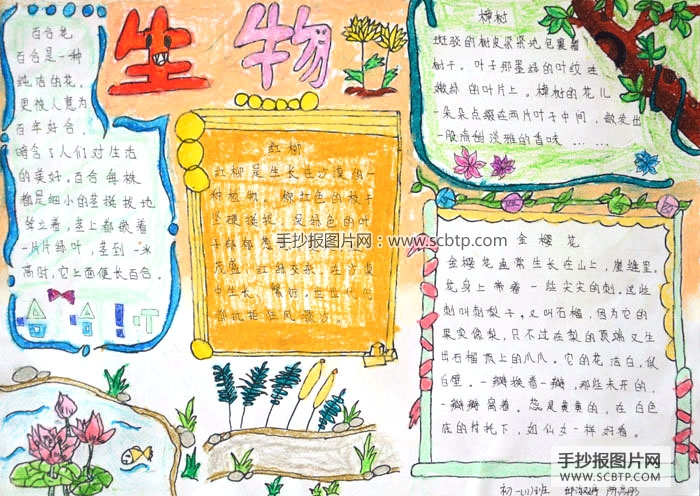 生物
百合花
百合是一种
纯洁的花。
更被人意为
百年好合,
暗含了人们对生活
的美好。百合每株
都是细小的茎挺拔地
耸立着,茎上都嵌着
一片片绿叶,茎到一米
高时,它上面便长百合。
红柳
红柳是生长在沙漠的一
种植物。棕红色的枝子
坚硬挺拔,
茂盛,
樟树
斑驳的树皮紧紧地包裹着
树干。叶子那墨绿的叶纹在
嫩绿的叶片上。樟树的花儿
一朵朵点缀在两片叶子中间,散发出
一股清甜淡雅的香味……
金樱花
金樱花通常生长在山上,崖缝里。
花身上带着一些尖尖的刺。这些
刺叫刺梨子,又叫石榴,因为它的
果实像梨,只不过在梨的顶端又生
出石榴顶上的爪爪。它的花洁白,似
白璧。一瓣挨着一瓣,那些未开的,
一瓣瓣窝着。蕊是黄黄的,在白色
底的衬托下,如仙女一样好看。
手抄报图片网:www.scbtp.com
初一(11)班
手抄报图片网
WWW.SCBTP.COM